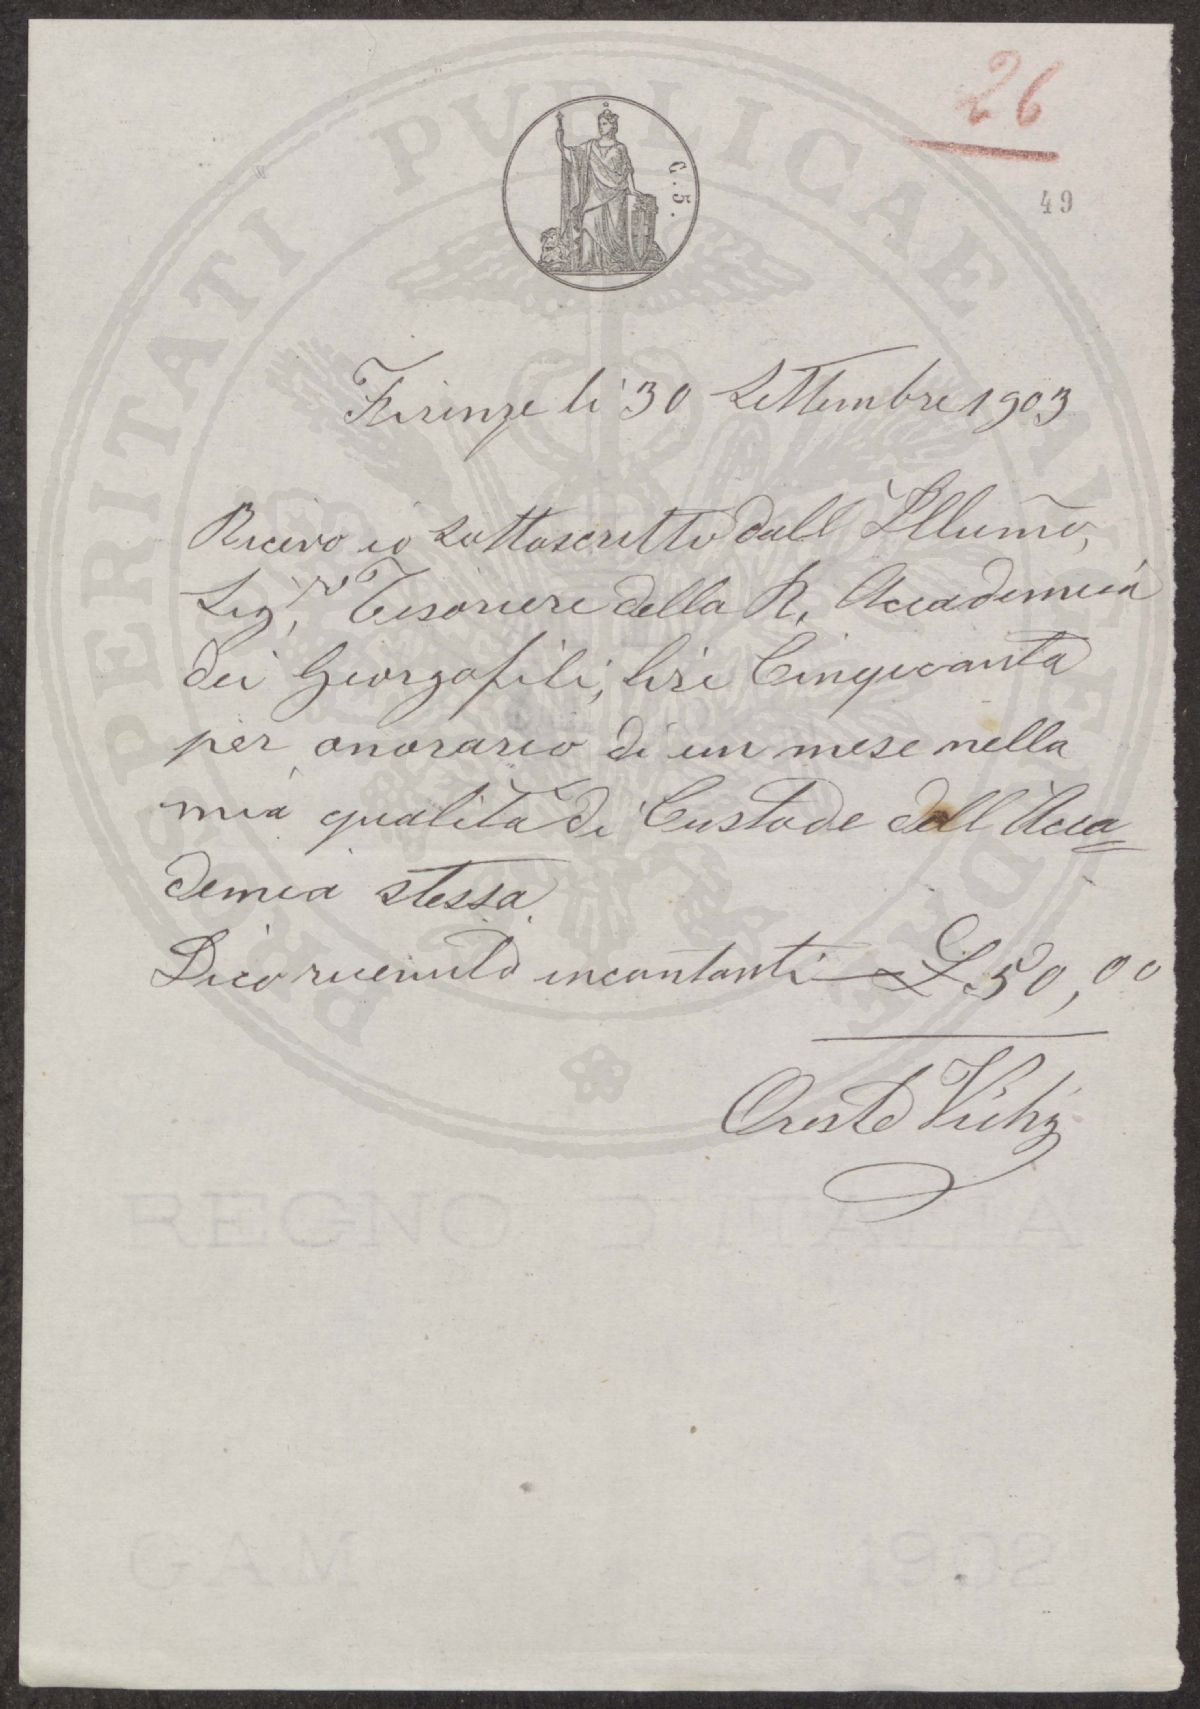 26
49
G. 5.
Firenze li 30 Settembre 1903
Ricevo io sottoscritto dall Illumo,
Sig.re Tesoriere della R. Accademia
dei Georgofili, lire Cinquanta
per onorario di un mese nella
mia qualità di Custode dell Acca=
demia stessa
Dico ricevuto in contanti £ 50,00
Oreste
PROSPERITATI PVBLICAE AVGENDAE
REGNO D'ITALIA
GAM 1902